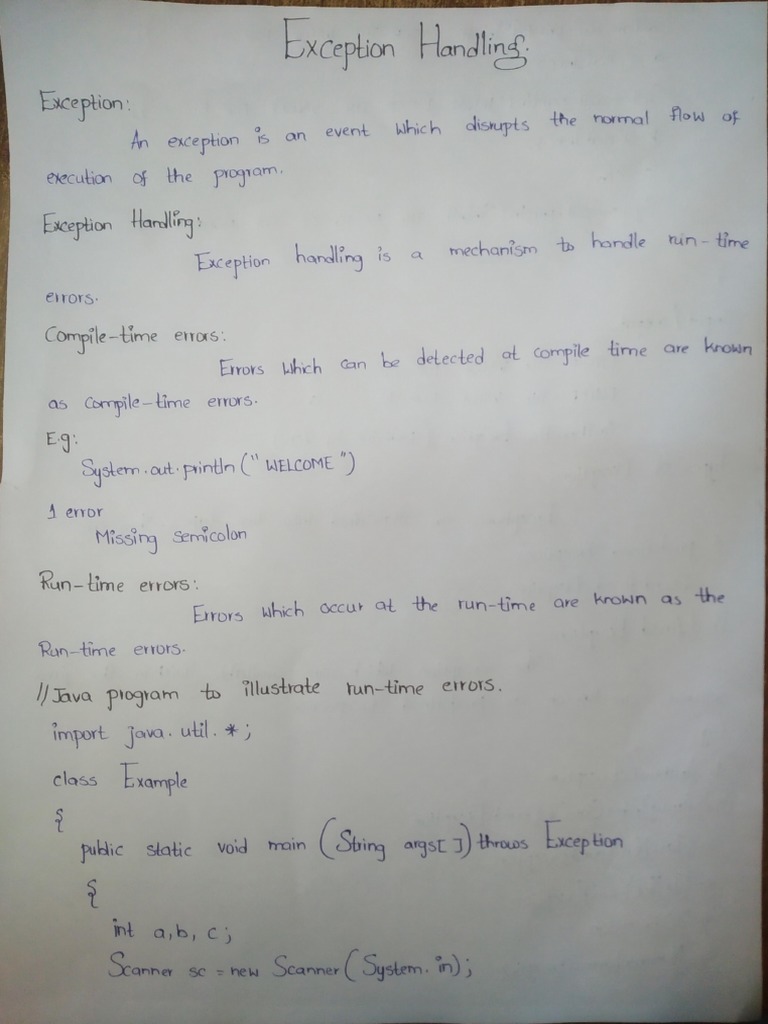 Exception Handling.
Exception:
An exception is an event which disrupts the normal flow of
execution of the program.
Exception Handling:
Exception handling is a mechanism to handle run-time
errors.
Compile-time errors:
Errors which can be detected at compile time are known
as compile-time errors.
E.g:
System.out.println("WELCOME")
1 error
Missing semicolon
Run-time errors:
Errors which occur at the run-time are known as the
Run-time errors.
//Java program to illustrate run-time errors.
import java.util.*;
class Example
{
public static void main (String args[]) throws Exception
{
int a,b,c;
Scanner sc = new Scanner(System.in);